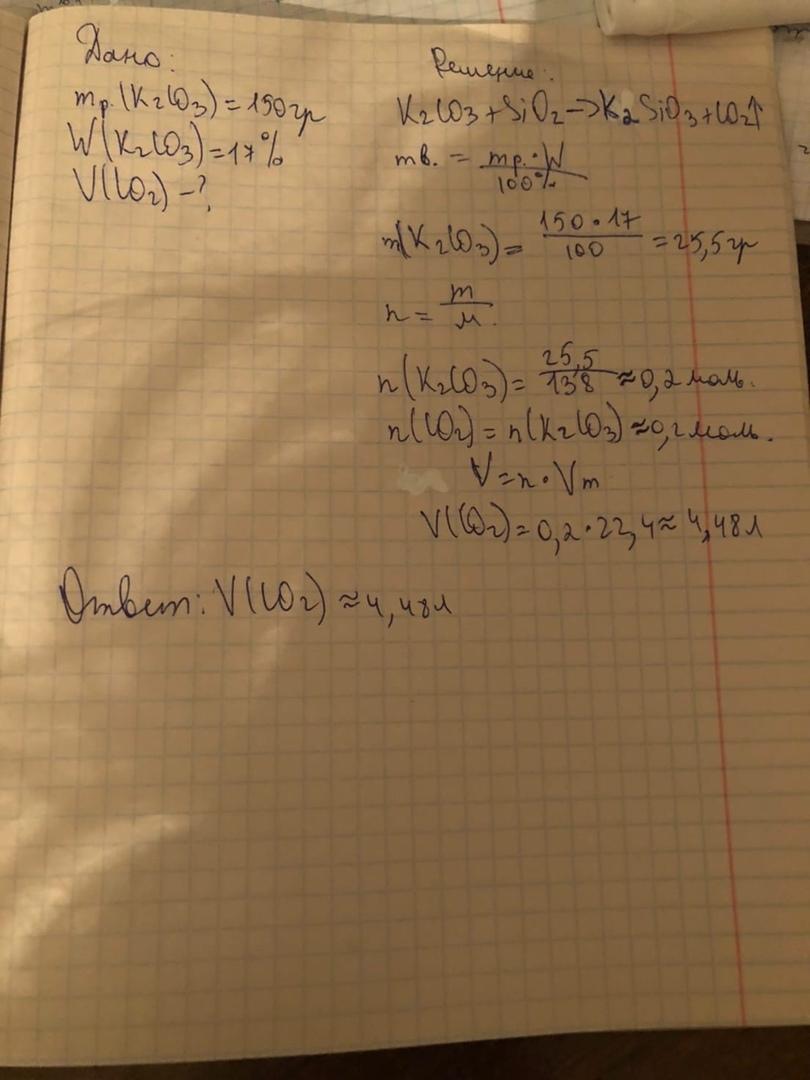 Дано:
mр.(K2CO3)=150гр
W(K2CO3)=17%
V(CO2)-?
Решение:
K2CO3+SiO2->K2SiO3+CO2↑
mв. = mр.·W
100%
m(K2CO3)= 150·17 =25,5гр
100
n= m
M.
n(K2CO3)= 25,5 ≈0,2 моль.
138
n(CO2)=n(K2CO3)≈0,2моль.
V=n·Vm
V(CO2)=0,2·22,4≈4,48л
Ответ: V(CO2)≈4,48л